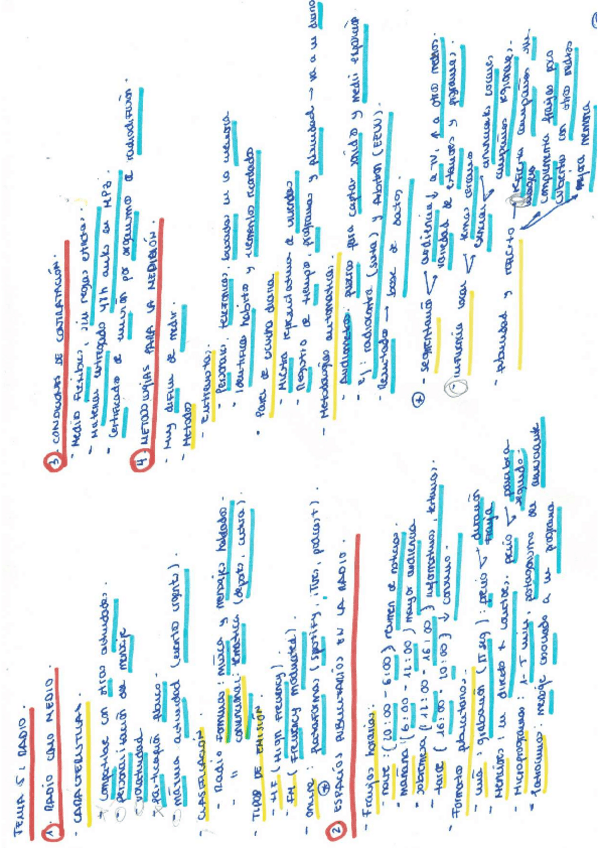 TEMA 5: RADIO.
1. RADIO COMO MEDIO.
- CARACTERÍSTICAS.
* compatible con otras actividades.
personalización del mensaje
creatividad
* participación público.
- máxima actualidad (evento urgente)
- CLASIFICACIÓN
- Radio fórmulas: música y mensajes hablados.
" convencional: temática (deporte, cultura).
- TIPOS DE EMISIÓN
- HF (High Frequency)
- FM (Frequency Modulated).
- online: plataformas (Spotify, iTunes, podcast).
2. ESPACIOS PUBLICITARIOS EN LA RADIO.
- Franjas horarias.
- noche: (20:00 - 6:00) resumen de noticias
- mañana: (6:00 - 12:00) mayor audiencia
- sobremesa (12:00 - 16:00) informativos, tertulias,
- tarde (16:00 20:00) ↓ consumo.
- Formatos publicitarios.
- cuña: grabación (15 seg): precio duración franja
- Menciones: en directo x locutor, precio palabra segundo.
- Microprogramas: 1-5 min, protagonismo del anunciante
- Patrocinio: mensaje asociado a un programa
3. CONDICIONES DE CONTRATACIÓN.
- Medio flexible, sin reglas escritas.
- Material entregado 48h antes en MP3.
- Certificado de emisión por organismo de radiodifusión.
4. METODOLOGÍAS PARA LA MEDICIÓN.
- Muy difícil de medir.
- Métodos
- Entrevistas.
- Personales, telefónicas, basadas en la memoria
- Identifica hábitos y elemento recordado
- Panel de escucha diaria
- Muestra representativa de viviendas
- Registro de tiempo, programas y publicidad → va a un diario
- Metodologías automáticas.
- Audiómetros: para captar sonido y medir espacios
- Ej: radiocontrol (suiza) y Arbitron (EEUU).
- Resultado → base de datos.
- segmentación audiencia ↓ a TV, ↑ a otros medios.
variedad de estaciones y programas.
- influencia local temas cercanos
cercanía anunciantes locales
campañas regionales.
- publicidad y refuerzo refuerza campañas
complementa franjas
cubierto con otros medios
mejora memoria